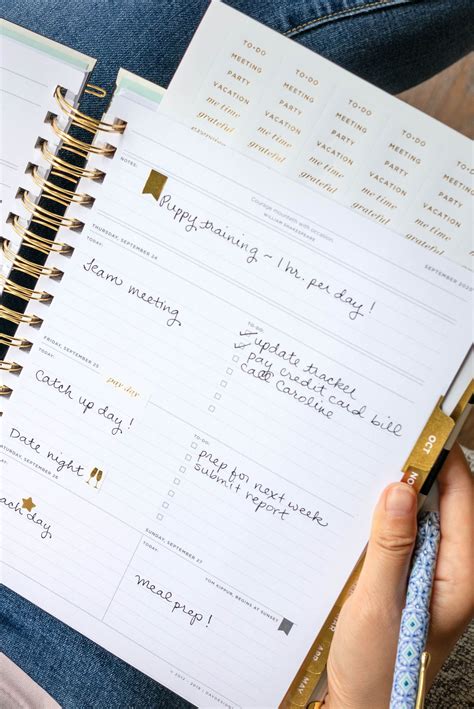 TO-DO
MEETING
PARTY
VACATION
me time
grateful
exercise
TO-DO
MEETING
PARTY
VACATION
me time
grateful
TO-DO
MEETING
PARTY
VACATION
me time
grateful
TO-DO
MEETING
PARTY
VACATION
me time
grateful
Courage mounteth with occasion.
WILLIAM SHAKESPEARE
SEPTEMBER 2020
NOTES:
Puppy training ~ 1 hr. per day!
THURSDAY, SEPTEMBER 24
TODAY:
Team meeting
TO-DO:
update tracker
pay credit card bill
call Caroline
FRIDAY, SEPTEMBER 25
TODAY:
pay day
Catch up day!
TO-DO:
prep for next week
submit report
Date night
SATURDAY, SEPTEMBER 26
day
SUNDAY, SEPTEMBER 27
TODAY:
YOM KIPPUR, BEGINS AT SUNSET
meal prep!
OCT
APR
MAY